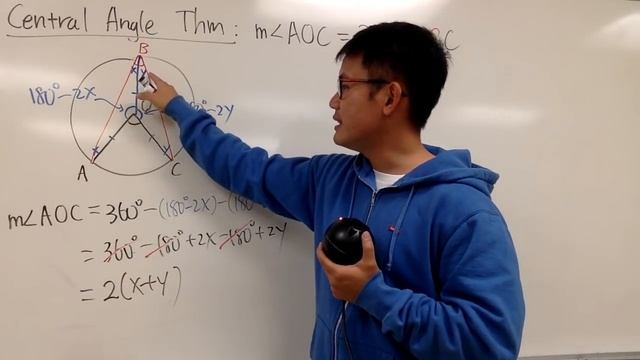 Central Angle Thm: m∠AOC =
B
180°-2X
-2Y
x y
A
C
m∠AOC = 360° - (180°-2X) - (180°
= 360° - 180° + 2X - 180° + 2Y
= 2(X+Y)